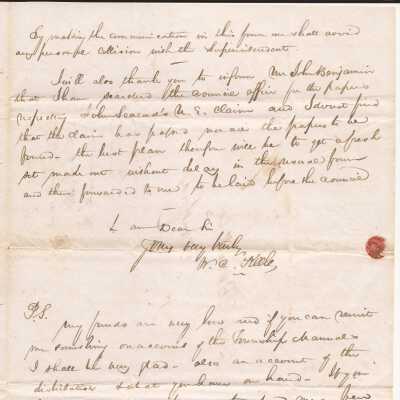 By making the communication in this form we shall avoid
any personal collision with the Superintendent.
I will also thank you to inform Mr John Benjamin
that I have searched the Council office for the papers
respecting John U. E. Claim and I do not find
that the claim has passed nor are the papers to be
found - the best plan therefore will be to get a fresh
set made out without delay in the usual form
and then forwarded to me to be laid before the Council
I am Dear Sir
yours very truly
W. C.
P.S.
My funds are very low and if you can remit
me something on account of the Township
I shall be very glad - also an account of the
what you have on hand - If you